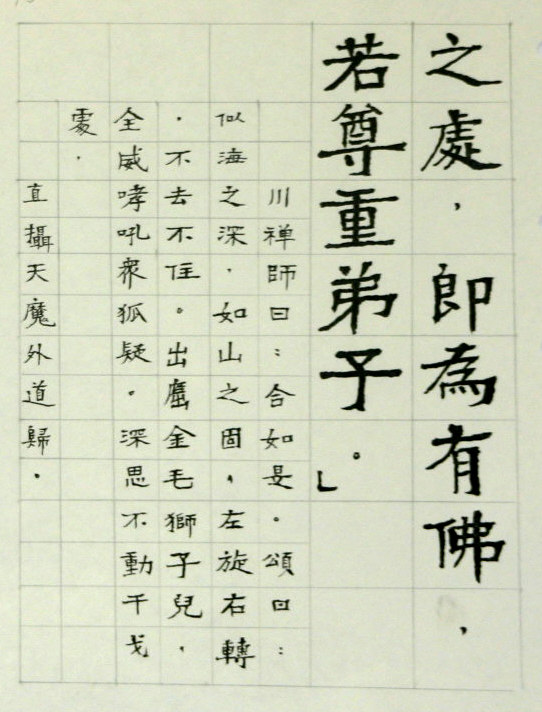 之處，即為有佛，
若尊重弟子。」
川禅師曰：合如是。頌曰：
似海之深，如山之固，左旋右轉
，不去不住。出窟金毛獅子兒，
全威哮吼衆狐疑。深思不動干戈
處，
直攝天魔外道歸。